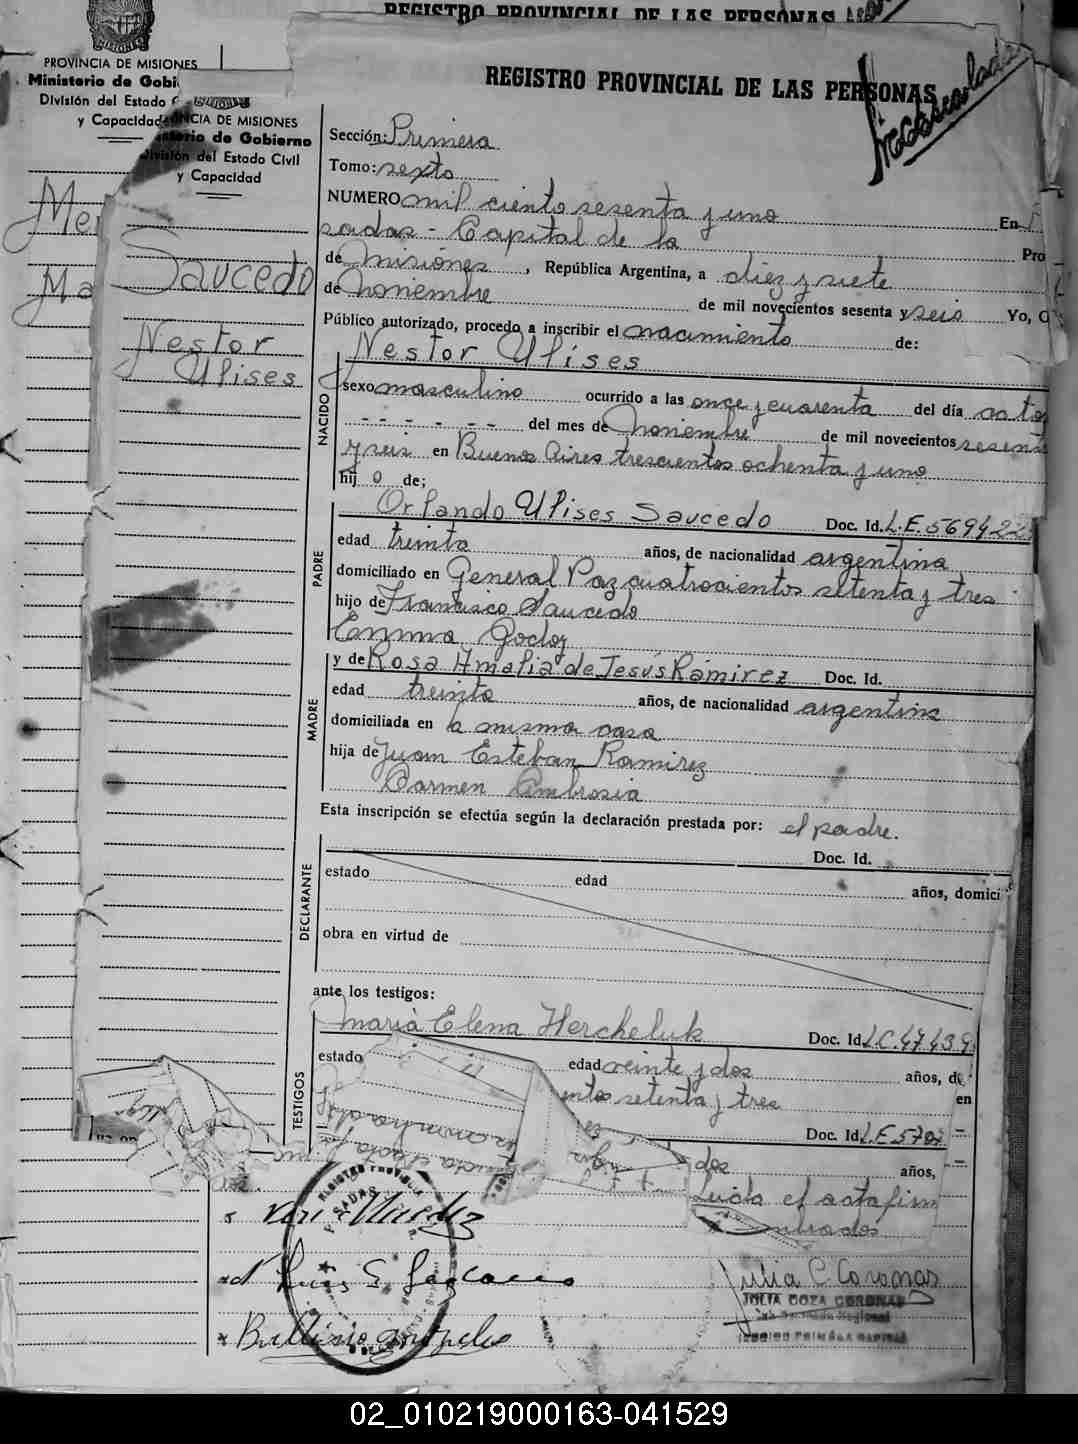 REGISTRO PROVINCIAL DE LAS PERSONAS
PROVINCIA DE MISIONES
Ministerio de Gobi
División del Estado C
y Capacidad
NCIA DE MISIONES
sterio de Gobierno
División del Estado Civil
y Capacidad
Me
Ma
Saucedo
Nestor
Ulises
REGISTRO PROVINCIAL DE LAS PERSONAS
Sección: Primera
Tomo: sexto
NUMERO mil ciento sesenta y uno En P
sadas - Capital de la Pro
de Misiones, República Argentina, a diez y siete
de Noviembre de mil novecientos sesenta y seis Yo, O
Público autorizado, procedo a inscribir el nacimiento de:
NACIDO
Nestor Ulises
sexo masculino ocurrido a las once y cuarenta del día
- - - - - - del mes de Noviembre de mil novecientos sesent
y seis en Buenos Aires trescientos ochenta y uno
hij o de;
PADRE
Orlando Ulises Saucedo Doc. Id. L.E. 569422
edad treinta años, de nacionalidad argentina
domiciliado en General Paz cuatrocientos setenta y tres
hijo de Francisco Saucedo
Emma Godoy
MADRE
y de Rosa Amalia de Jesús Ramirez Doc. Id.
edad treinta años, de nacionalidad argentina
domiciliada en la misma casa
hija de Juan Esteban Ramirez
Carmen Ambrosia
Esta inscripción se efectúa según la declaración prestada por: el padre.
DECLARANTE
Doc. Id.
estado edad años, domici
obra en virtud de
ante los testigos:
TESTIGOS
Maria Elena Hercheluk Doc. Id L.C. 47439
estado edad veinte y dos años, d
entos setenta y tres en
Doc. Id L.E 578
dos años,
Leida el acta firm
Julia C. Coronas
JULIA COZA CORONAS
02_010219000163-041529